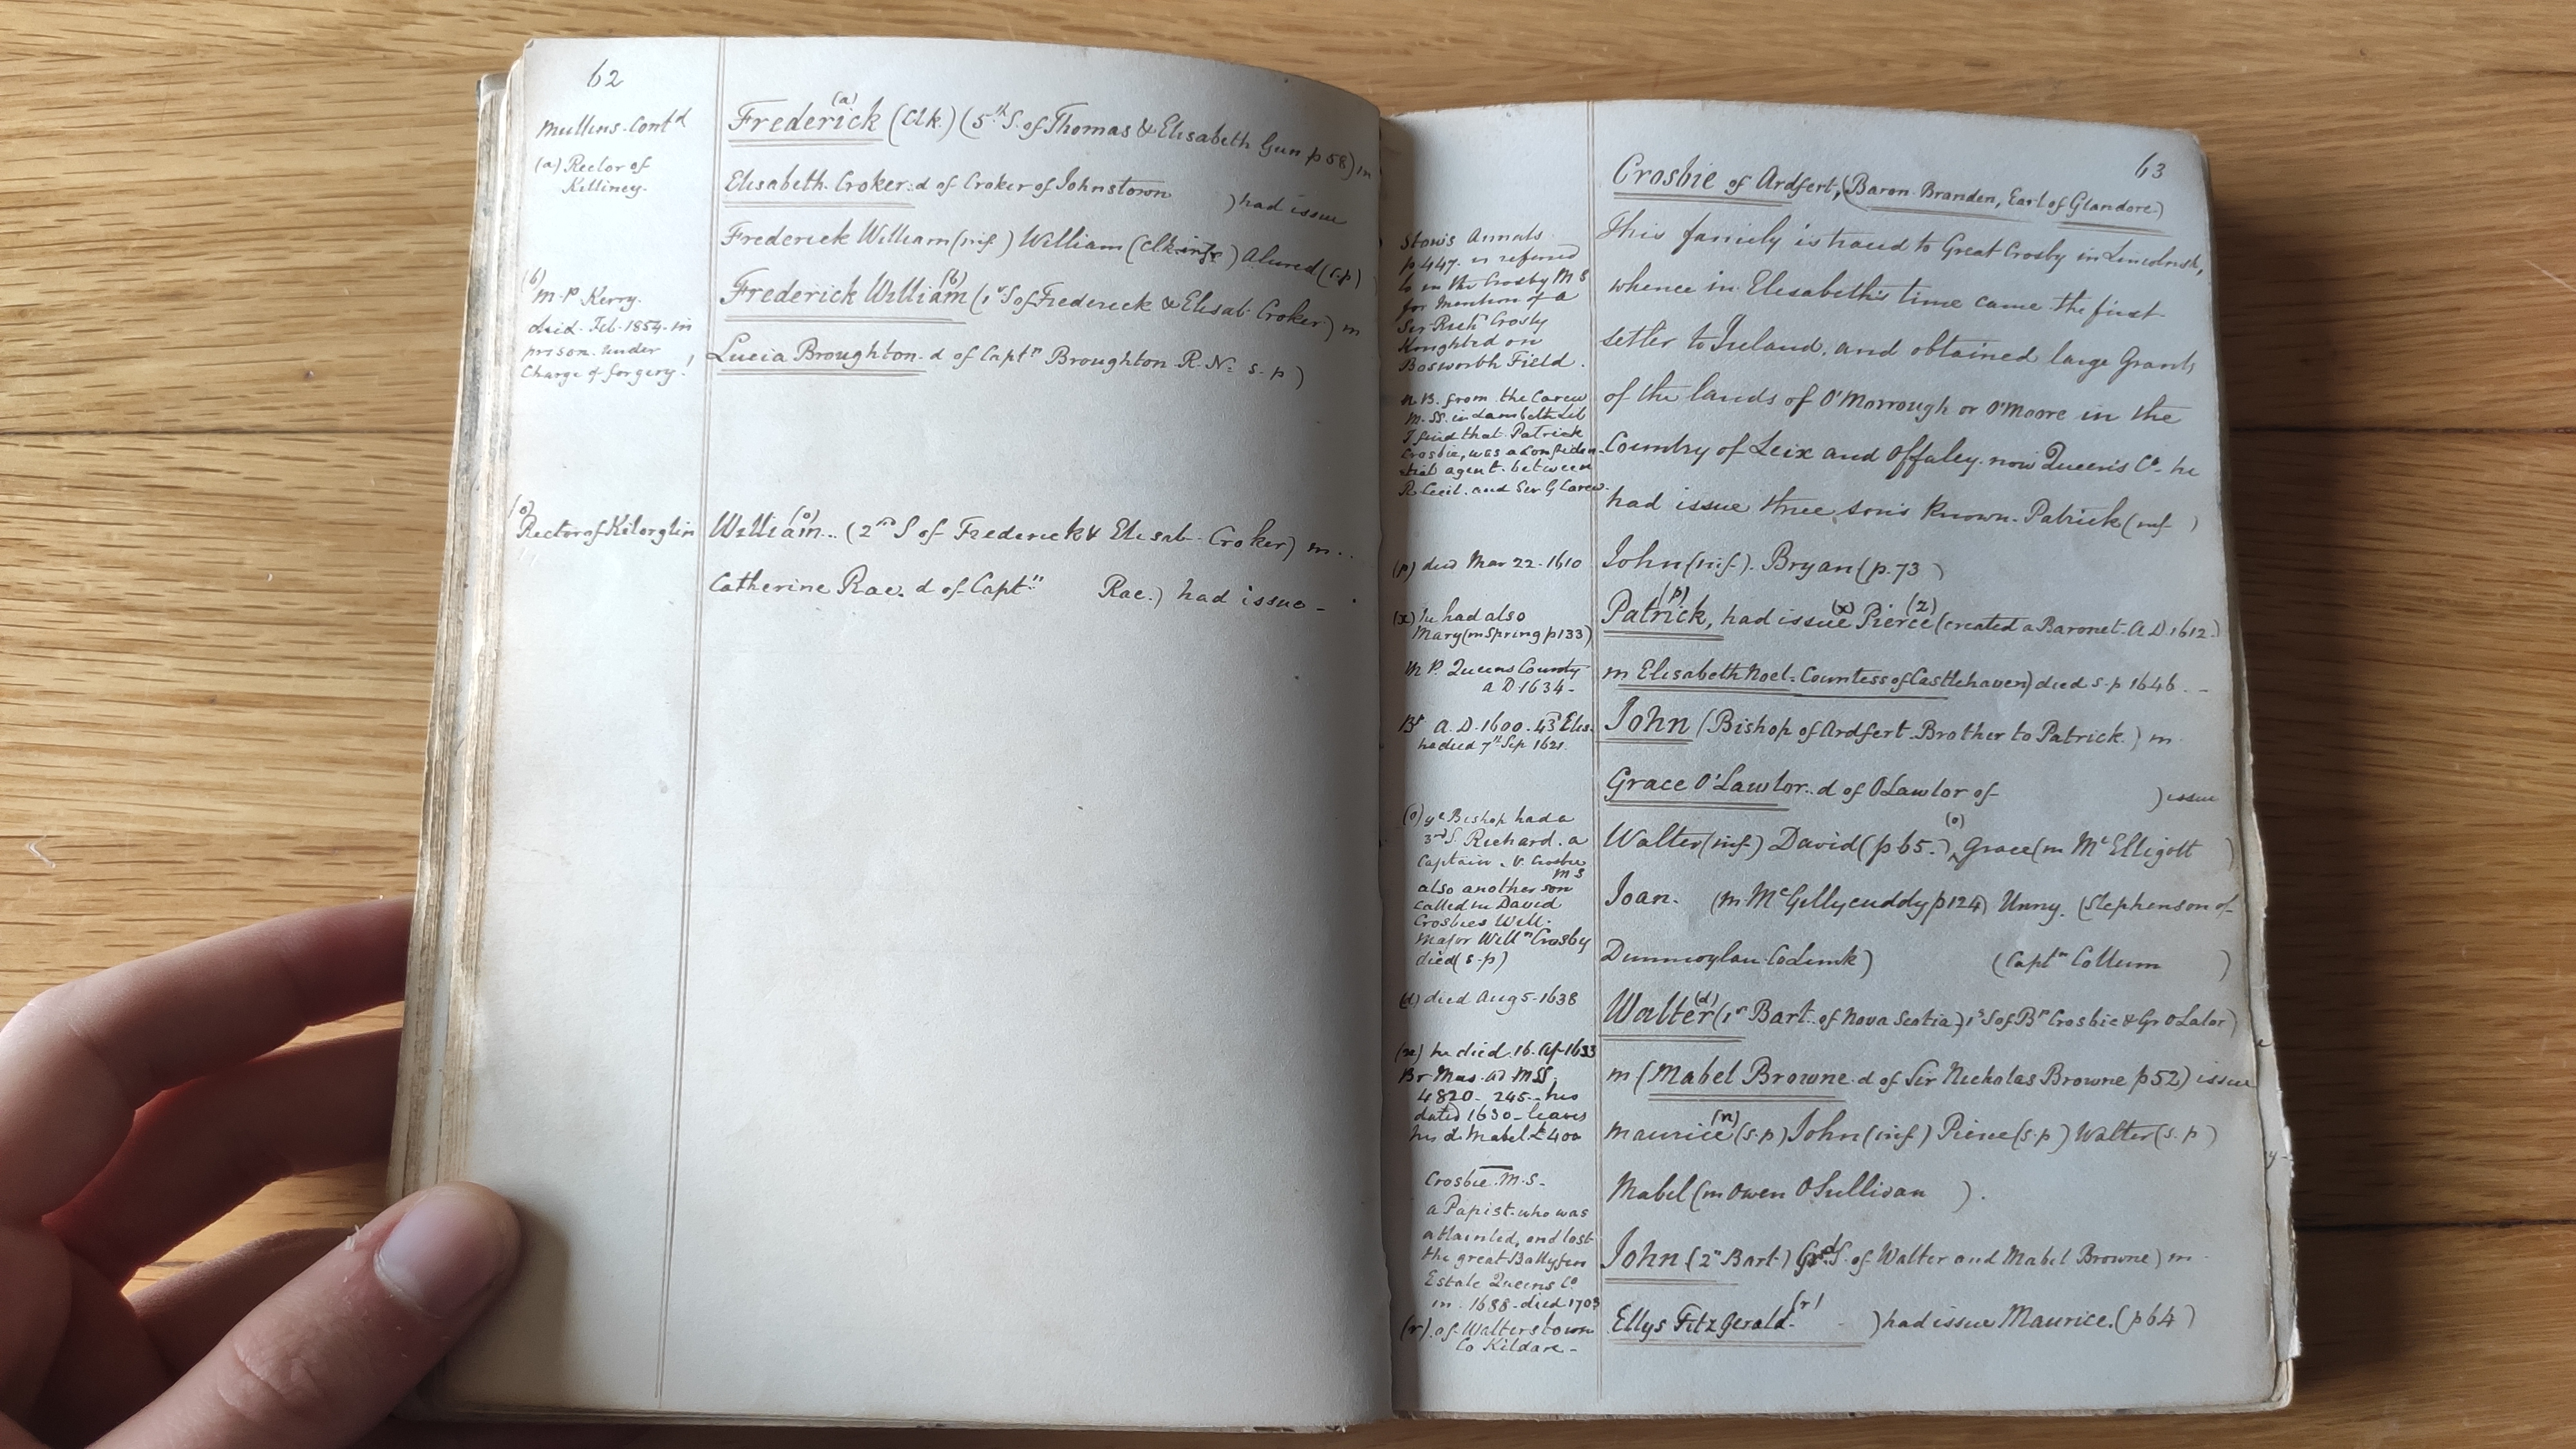 62
Mullins Cont'd
(a) Rector of
Killiney.
(b)
M.P. Kerry.
died Feb. 1854 in
prison under
Charge of forgery!
(o)
Rector of Kilorglin
Frederick (a) (Clk.) (5th S. of Thomas & Elisabeth Gun p 58) m
Elisabeth Croker. d of Croker of Johnstown ) had issue
Frederick William (inf.) William (Clk. inf.) Alured (s.p)
Frederick William (b) (1st S of Frederick & Elisab. Croker) m
Lucia Broughton. d of Captn Broughton R.N. s.p)
William (o) .. (2nd S of Frederick & Elisab. Croker) m..
Catherine Rae. d of Captn Rae.) had issue -
63
Stow's Annals
p 447. is referred
to in the Crosby MS
for Mention of a
Sir Richd Crosby
Knighted on
Bosworth Field.
N.B. from the Carew
M.SS. in Lambeth Lib
I find that Patrick
Crosbie, was a confiden-
tial agent between
R Cecil. and Sir G Carew.
(p) died Mar 22. 1610
(x) he had also
Mary (m Spring p 133)
M P. Queens County
A D 1634 -
Bp A.D. 1600. 43 Elis.
he died 7th Sep 1621.
(o) ye Bishop had a
3rd S. Richard. a
Captain. V. Crosbie
MS
also another son
called in David
Crosbies Will.
Major Willm Crosby
died (s.p)
(d) died Aug 5. 1638
(n) he died 16. Ap 1633
Br Mus. AD MSS
4820 - 245 - his
dated 1630 - leaves
his d. Mabel £400
Crosbie M.S.
a Papist who was
attainted, and lost
the great Ballyfin
Estate Queens Co
in 1688 - died 1703
(r) of Walterstown
Co Kildare -
Crosbie of Ardfert, (Baron Branden, Earl of Glandore)
This family is traced to Great Crosby in Lincolnsh,
whence in Elisabeth's time came the first
settler to Ireland, and obtained large Grants
of the lands of O'Morrough or O'Moore in the
Country of Leix and Offaley. now Queen's Co. he
had issue three sons known. Patrick (inf )
John (inf.). Bryan (p. 73 )
Patrick, (p) had issue (x) Pierce (2) (created a Baronet. A D. 1612.)
m Elisabeth Noel. Countess of Castlehaven) died s.p 1646. -
John (Bishop of Ardfert. Brother to Patrick.) m
Grace O'Lawlor. d of O Lawlor of ) issue
Walter (inf.) David (p 65.) (o) Grace (m McElligott )
Joan. (m McGillycuddy p 124) Unny. (Stephenson of
Dunmoylan Co Limk) (Captn Collum )
Walter (d) (1st Bart. of Nova Scotia) 1s S of Bp Crosbie & Gr O Lalor)
m (Mabel Browne. d of Sir Nicholas Browne p 52) issue
Maurice (n) (s.p) John (inf.) Pierce (s.p) Walter (s.p)
Mabel (m Owen O Sullivan ).
John (2n Bart.) Grd S. of Walter and Mabel Browne) m
Ellys FitzGerald (r) ) had issue Maurice. (p 64)